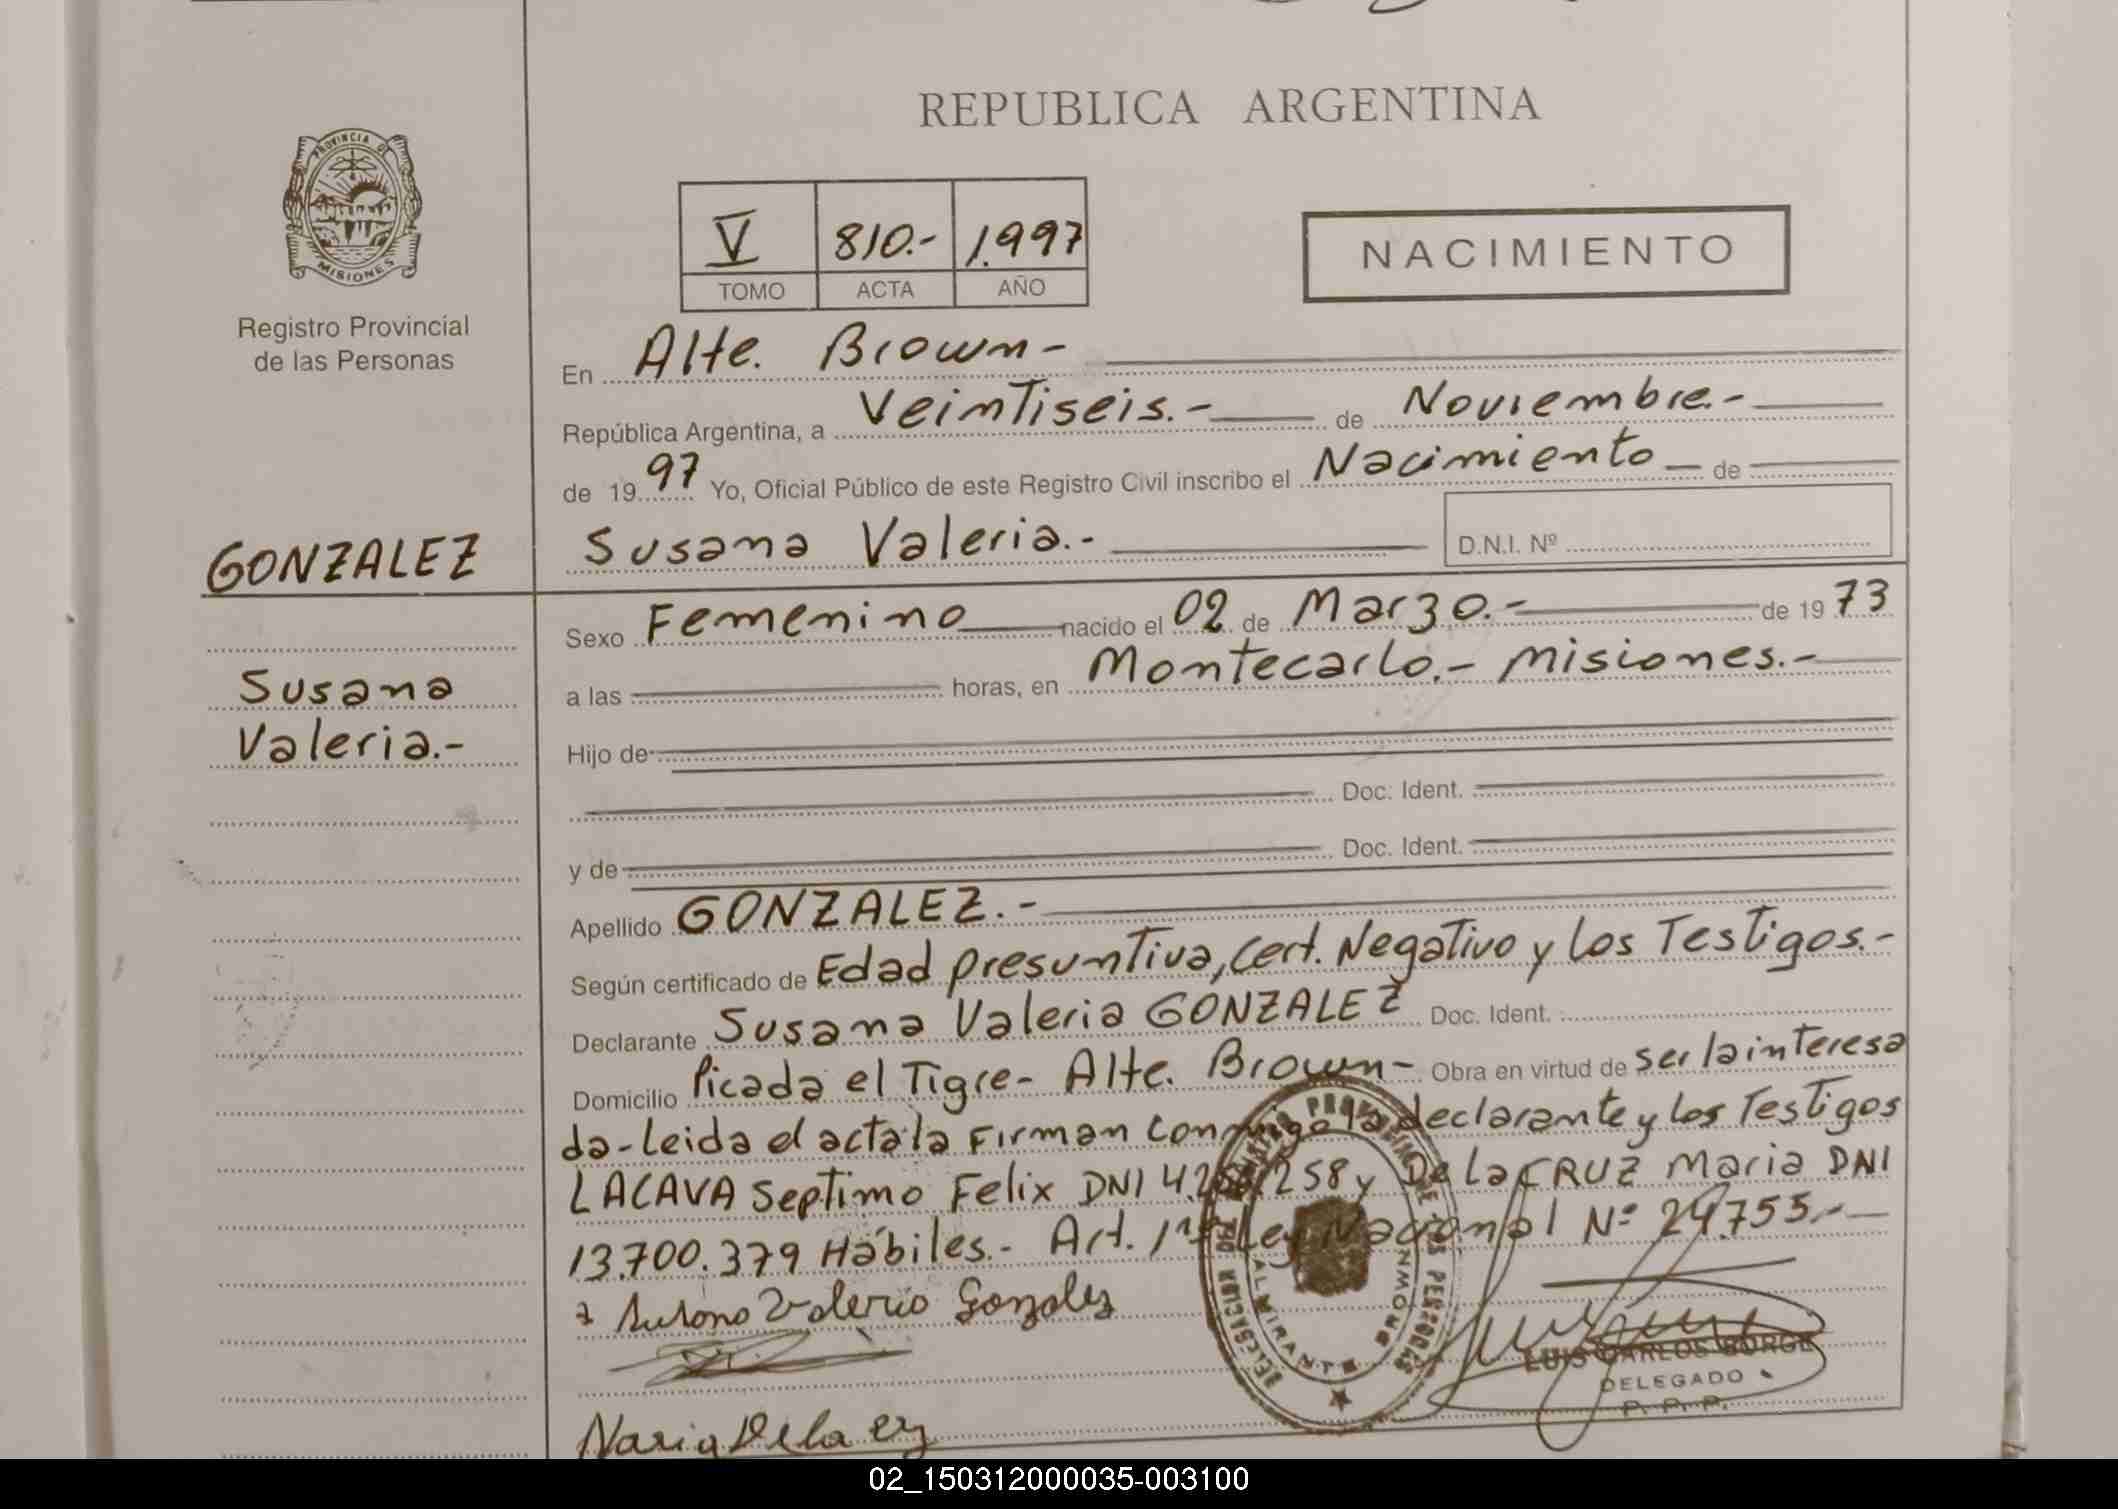 REPUBLICA ARGENTINA
PROVINCIA DE
MISIONES
Registro Provincial
de las Personas
V 810.- 1.997
TOMO ACTA AÑO
NACIMIENTO
En Alte. Brown-
República Argentina, a Veintiseis.- de Noviembre.-
de 1997 Yo, Oficial Público de este Registro Civil inscribo el Nacimiento de
GONZALEZ
Susana Valeria.- D.N.I. Nº
Sexo Femenino nacido el 02 de Marzo.- de 1973
Susana
Valeria.-
a las horas, en Montecarlo.- Misiones.-
Hijo de
Doc. Ident.
y de Doc. Ident.
Apellido GONZALEZ.-
Según certificado de Edad presuntiva, Cert. Negativo y los Testigos.-
Declarante Susana Valeria GONZALEZ Doc. Ident.
Domicilio Picada el Tigre- Alte. Brown- Obra en virtud de ser la interesa
da- Leida el acta la Firman conmigo la declarante y los Testigos
LACAVA Septimo Felix DNI 258 y De la CRUZ Maria DNI
13.700.379 Hábiles.- Art. Ley Nacional Nº 24.755.-
Valeria Gonzalez
Maria De la
LUIS CARLOS BORGE
DELEGADO
ALMIRANTE BROWN
02_150312000035-003100